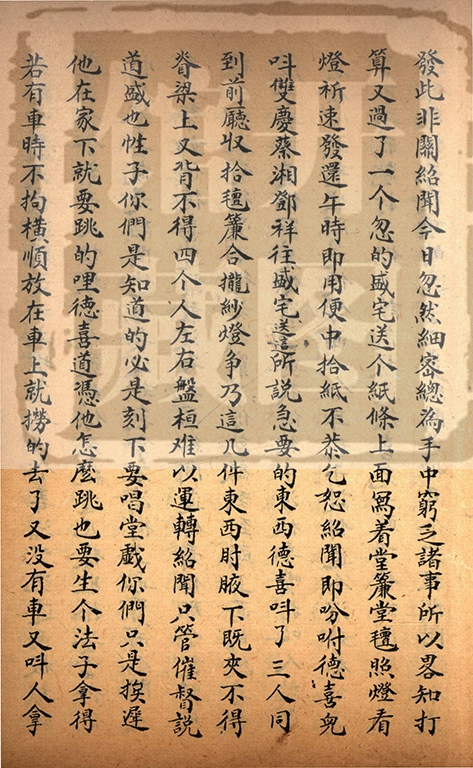 發此非關紹聞今日忽然細密總為手中窮乏諸事所以畧知打
算又過了一个忽的盛宅送个紙條上面寫着堂簾堂氊照燈看
燈祈速發還午時即用便中拾紙不恭乞恕紹聞即吩咐德喜兒
呌雙慶蔡湘鄧祥往盛宅送這所說急要的東西德喜呌了三人同
到前廳収拾氊簾合攏紗燈争乃這几件東西肘腋下既夾不得
脊梁上又背不得四个人左右盤桓难以運轉紹聞只管催督說
道盛也性子你們是知道的必是刻下要唱堂戲你們只是挨遲
他在家下就要跳的哩德喜道憑他怎麽跳也要生个法子拿得
若有車時不拘橫順放在車上就撈的去了又没有車又呌人拿